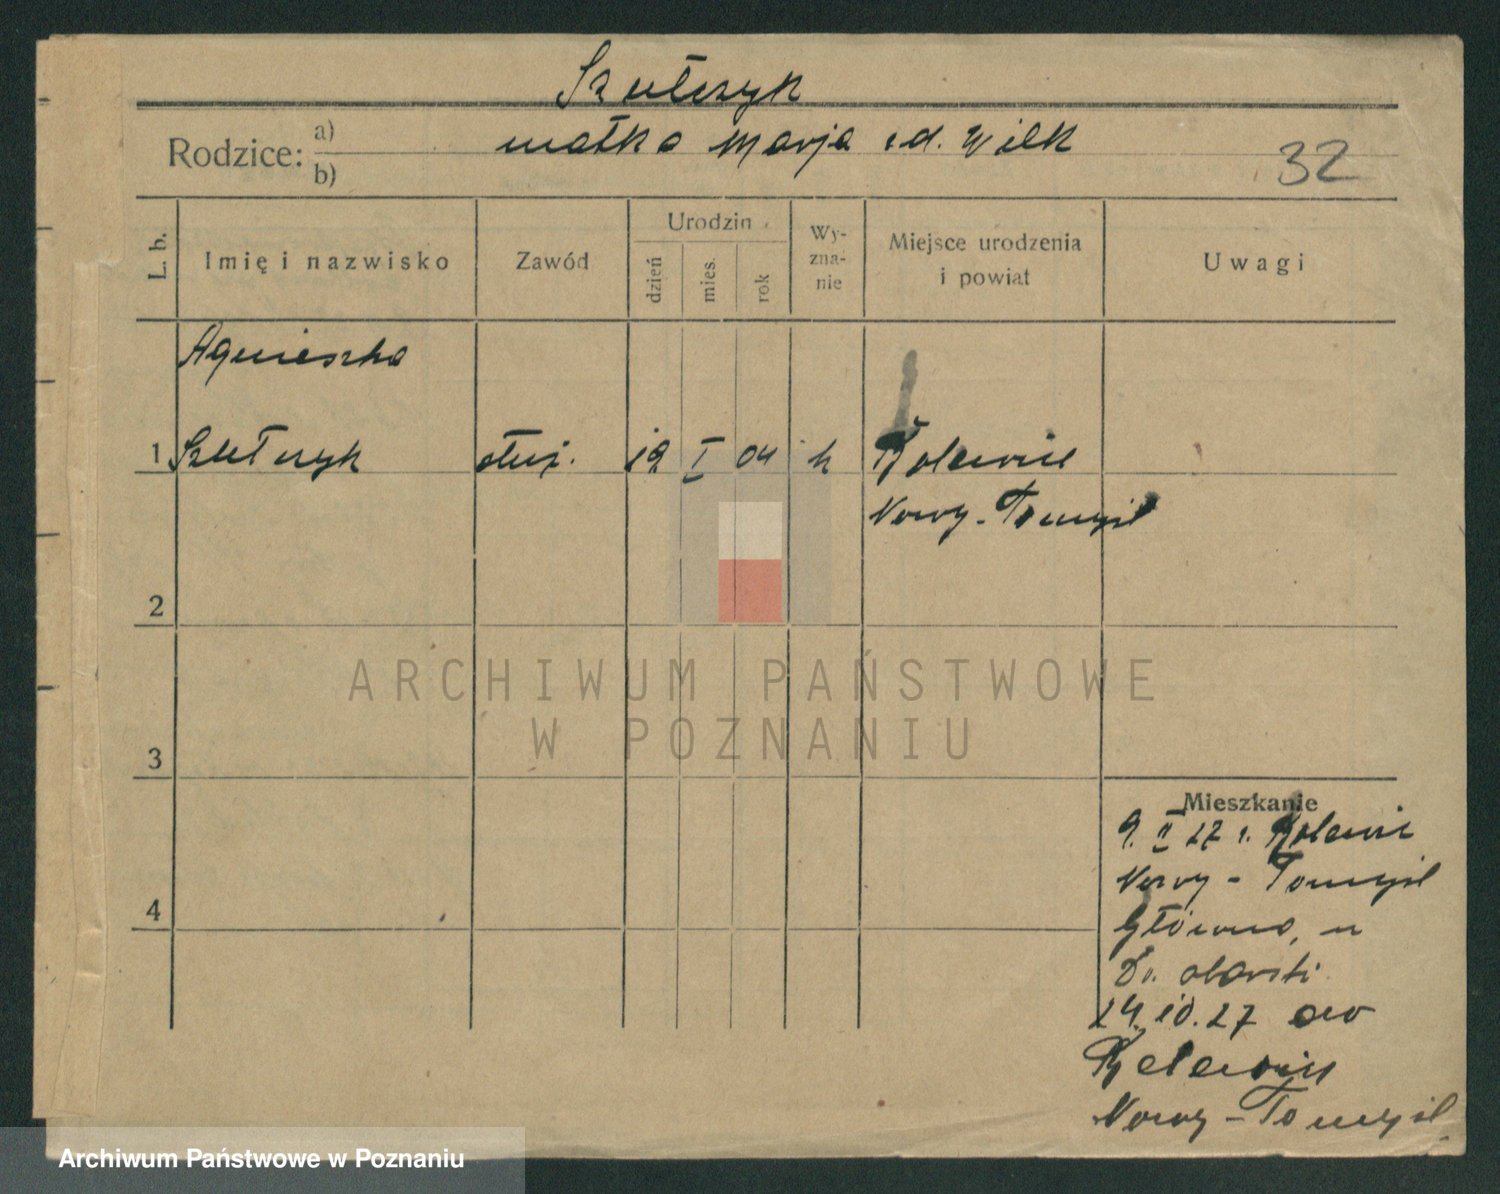 Szułczyk
Rodzice: a)
b)
matka Marja z d. Wilk
32
L. b.
Imię i nazwisko
Zawód
Urodzin
dzień
mies.
rok
Wy-
zna-
nie
Miejsce urodzenia
i powiat
Uwagi
Agnieszka
1 Szułczyk służ. 19 I 04 k
Nowy-Tomyśl
2
ARCHIWUM PAŃSTWOWE
W POZNANIU
3
Mieszkanie
9. II 27
Nowy-Tomyśl
4
Główno, u
24.10.27
Nowy-Tomyśl
Archiwum Państwowe w Poznaniu